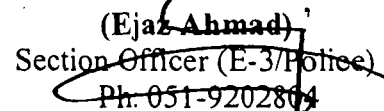 (Ejaz Ahmad)
Section Officer (E-3/Police)
Ph: 051-9202804